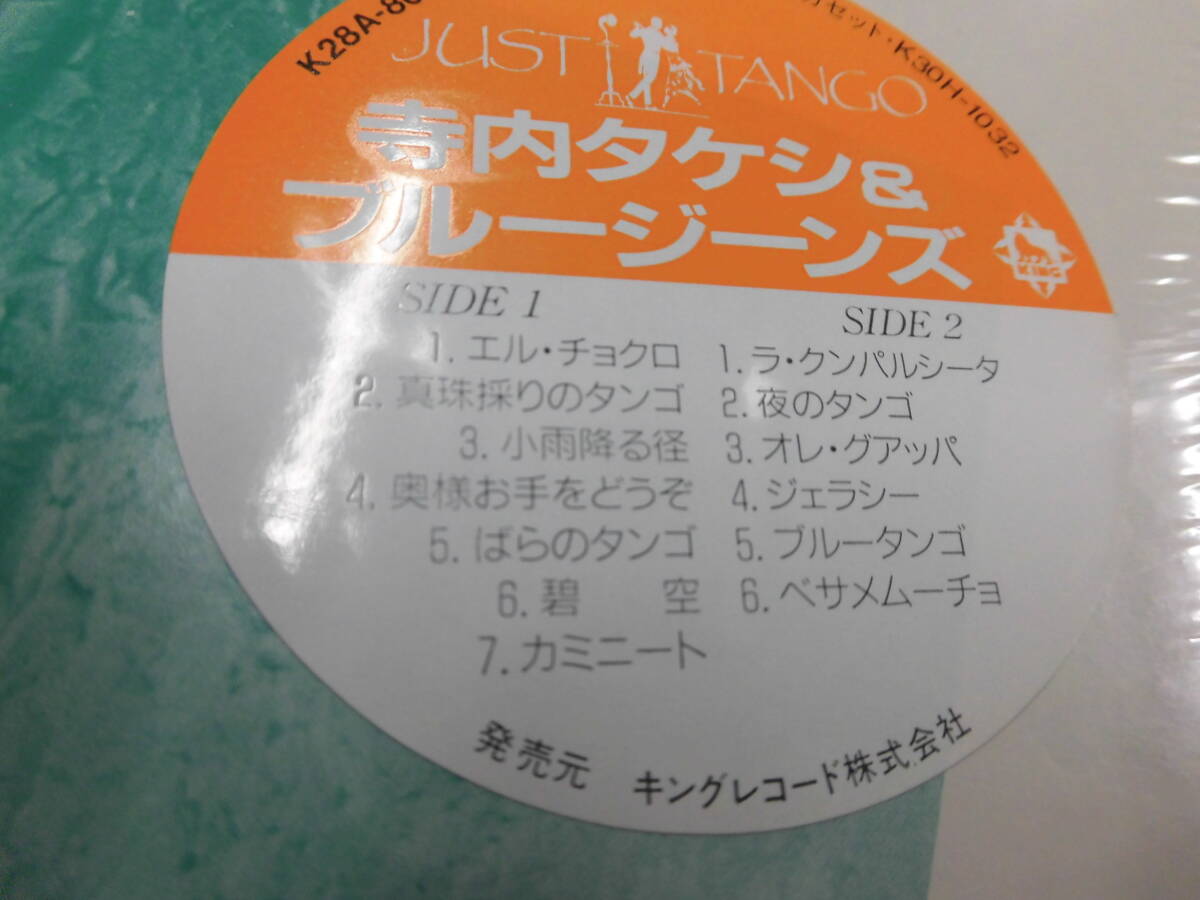 K28A-8
セット・K30H-1032
JUST TANGO
寺内タケシ&
ブルージーンズ
SIDE 1
1. エル・チョクロ
2. 真珠採りのタンゴ
3. 小雨降る径
4. 奥様お手をどうぞ
5. ばらのタンゴ
6. 碧 空
7. カミニート
SIDE 2
1. ラ・クンパルシータ
2. 夜のタンゴ
3. オレ・グアッパ
4. ジェラシー
5. ブルータンゴ
6. ベサメムーチョ
発売元 キングレコード株式会社